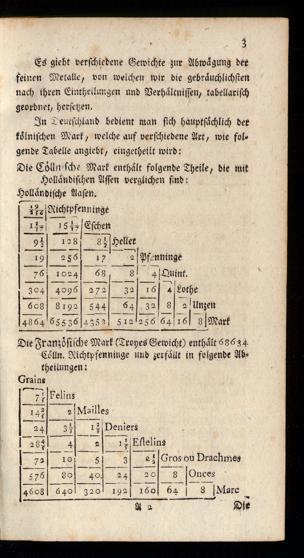 3
Es giebt verschiedene Gewichte zur Abwägung der
feinen Metalle, von welchen wir die gebräuchlichsten
nach ihren Eintheilungen und Verhältnissen, tabellarisch
geordnet, hersetzen.
In Deutschland bedient man sich hauptsächlich der
kölnischen Mark, welche auf verschiedene Art, wie fol-
gende Tabelle angiebt, eingetheilt wird:
Die Cöllnische Mark enthält folgende Theile, die mit
Holländischen Assen verglichen sind:
Holländische Aasen.
Richtpfenninge
Eschen
9½ 128 8½ Heller
19 256 17 2 Pfenninge
76 1024 68 8 4 Quint.
304 4096 272 32 16 4 Lothe
608 8192 544 64 32 8 2 Unzen
4864 65536 4352 512 256 64 16 8 Mark
Die Französische Mark (Troyes Gewicht) enthält 68634
Cölln. Richtpfenninge und zerfällt in folgende Ab-
theilungen:
Grains
Felins
2 Mailles
24 Deniers
4 2 Estelins
72 10 5 3 Gros ou Drachmes
576 80 40 24 20 8 Onces
4608 640 320 192 160 64 8 Marc
A 2 Die